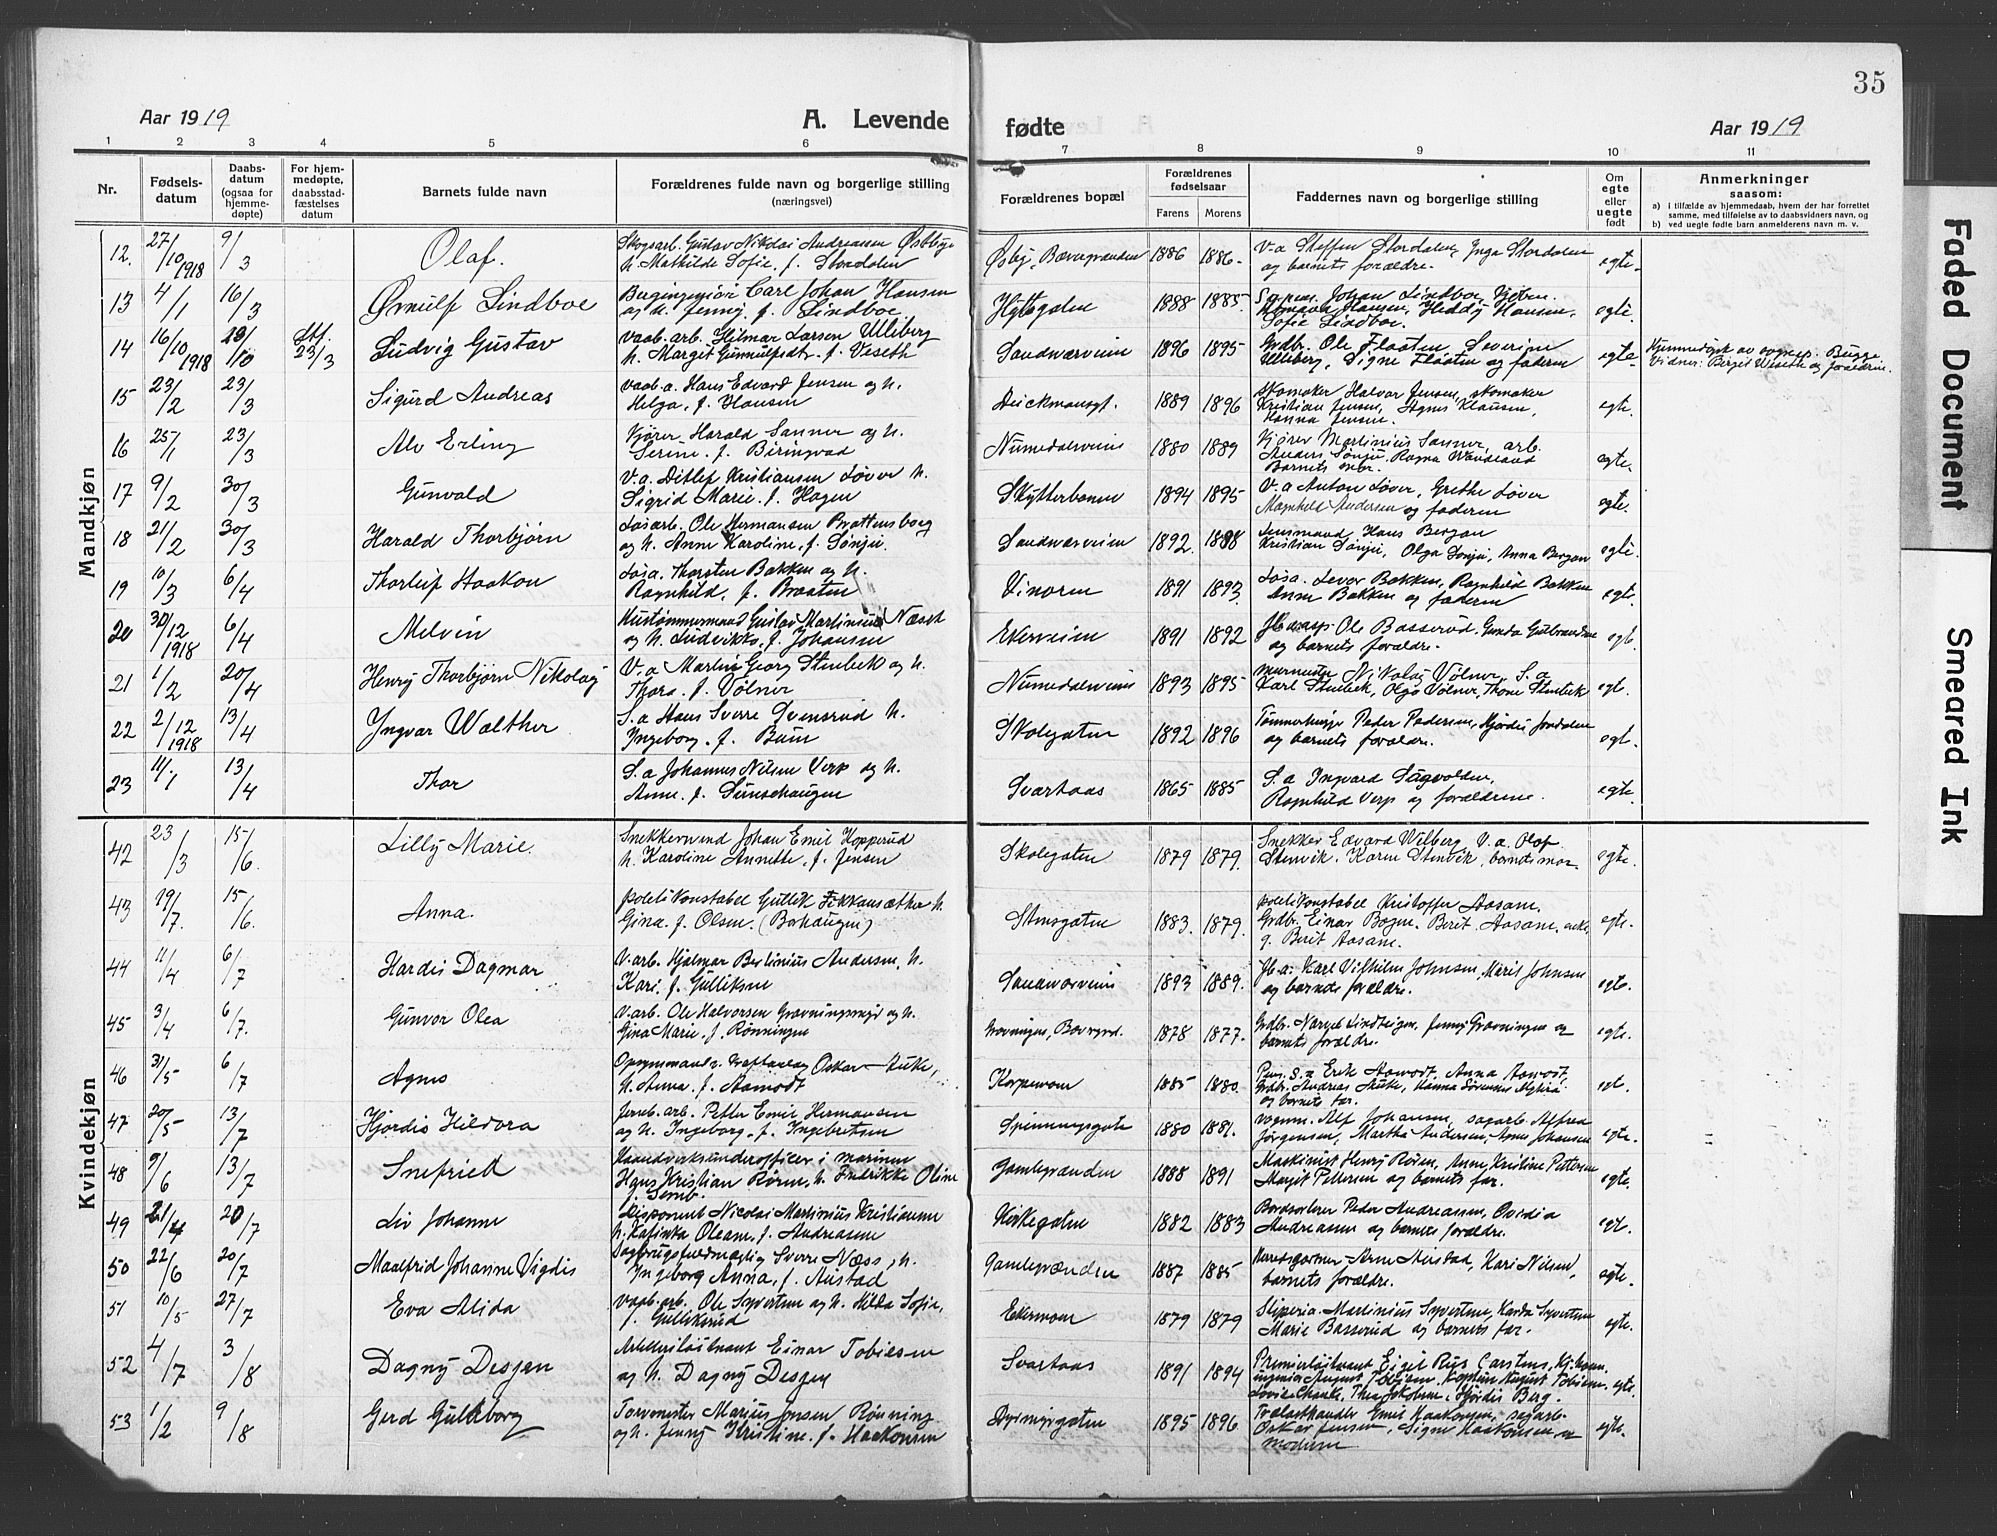 35
Aar 1919
A. Levende
fødte
Aar 1919
1 2 3 4 5 6 7 8 9 10 11
Nr.
Fødsels-
datum
Daabs-
datum
(ogsaa for
hjemme-
døpte)
For hjem-
medøpte,
daabsstad-
fæstelses
datum
Barnets fulde navn
Forældrenes fulde navn og borgerlige stilling
(næringsvei)
Forældrenes bopæl
Forældrenes
fødselsaar
Farens Morens
Faddernes navn og borgerlige stilling
Om
egte
eller
uegte
født
Anmerkninger
saasom:
a) i tilfælde av hjemmedaab, hvem der har forrettet
samme, med tilføielse av to daabsvidners navn, og
b) ved uegte fødte barn anmelderens navn m. v.
Mandkjøn
12. 27/10 1918 9/3 Olaf. Skogsarb. Gustav Nikolai Andreassen Østbye
h. Mathilde Sofie, f. Stordalen
1886 1886 V-a Steffen Stordalen, Inga Stordalen
og barnets forældre. egte.
13 4/1 16/3 Ørnulf Lindboe Bergingeniør Carl Johan Hansen
og h. Jenny f. Lindboe.
Hyttegaten 1888 1885 Johan Lindboe,
Hansen, Heddy Hansen,
Sofie Lindboe. egte.
14 16/10 1918 Stf. 23/3 Ludvig Gustav Vaab. arb. Hilmar Larsen Ulleberg
h. Marget Gunnulfsdtr. f. Veseth
Sandsværveien 1896 1895 Grdbr. Ole Flaaten, Severine
Ulleberg, Signe Flaaten og faderen egte.
Hjemmedøpt av sognepr. Bugge
Vidner: Birgit Weseth og forældrene.
15 23/2 23/3 Sigurd Andreas Vaab. a. Hans Edvard Jensen og h.
Helga, f. Hansen
Deichmansgt. 1889 1896 Skomaker Halvor Jensen, skomaker
Kristian Jensen, Agnes Klausen,
Hanna Jensen. egte.
16 25/1 23/3 Alv Erling Kjører Harald Sanner og h.
Serine, f. Beringvad
Numedalsveien 1880 1889 Kjører Martinius Sanner, arb.
Anders Sønju, Ragna Wandelaad
egte.
17 9/2 30/3 Gunvald V. a. Ditlef Kristiansen Løver h.
Sigrid Marie, f. Hagen
Skytterbanen 1894 1895 V. a Anton Løver, Grethe Løver
Magnhild Andersen og faderen egte.
18 21/2 30/3 Harald Thorbjørn Løsarb. Ole Hermansen Brattensborg
og h. Anne Karoline, f. Sønju.
Sandsværveien 1892. 1888 Lensmand Hans Bergan
Kristian Sønju, Olga Sønju, Anna Bergan egte.
19 10/3 6/4 Thorleif Haakon Løsa. Thorsten Bakken og h.
Ragnhild, f. Braaten
Vinoren 1891 1893. Løsa. Lever Bakken, Ragnhild Bakken
Anne Bakken og faderen egte.
20 30/12 1918 6/4 Melvin Hustømmermand Gustav Martinius Næset
og h. Ludvikke, f. Johansen
1891 1892 Ole Basserud, Gunda Gulbrandsen
og barnets forældre. egte.
21 1/2 20/4 Henry Thorbjørn Nikolay V. a Martin Georg Stenbek og h.
Thora. f. Vølner
Numedalsveien 1893 1895 Murmester Nikolay Vølner, S. a
Karl Stenbek, Olga Vølner, Thone Stenbek egt.
22 2/12 1918 13/4 Yngvar Walther S. a Hans Sverre Svensrud h.
Ingeborg. f. Bæm
Skolegaten 1892 1896 Peder Pedersen, Hjørdis
og barnets forældre. egt.
23 11/1 13/4 Thor S. a Johannes Nilsen Verp og h.
Anne. f.
Svartaas 1865 1885 S. a Ingvard Sagvolden,
Ragnhild Verp og forældrene. egte.
Kvindekjøn
42 23/3 15/6 Lilly Marie. Snekkersvend Johan Emil Hopperud
h. Karoline Annette, f. Jensen
Skolegaten 1879 1879. Snekker Edvard Welberg V. a. Olaf
Stenvik. Karen Stenvik, barnets mor egte.
43 15/6. Anna. Politikonstabel Gullik Fikkansæther h.
Gina. f. Olsen. (Borhaugen)
Stensgaten 1883. 1879. Politikonstabel Kristoffer Aasam.
Grdbr. Einar Bogen. Berit Aasam, enke,
g. Berit Aasam. egte.
44 11/4 6/7 Hardis Dagmar V. arb. Hjalmar Berlinius Andersen, h.
Kari, f. Gulliksen
Sandsværveien 1893 1889. Jb. a. Karl Vilhelm Johnsen, Marit Johnsen
og barnets forældre. egte.
45 3/4 6/7. Gunvor Olea V. arb. Ole Halvorsen Gravningsmyr og h.
Gina Marie. f. Rønningen
Gravningen, 1878 1877. Grdbr. Lindteigen, Jenny Gravningen og
barnets forældre. egte.
46 31/5 6/7 Agnes Oskar Auke,
h. Anna. f. Aamodt
Korpemoen 1885 1880. Pens. S. a Erik Aamodt, Anna Aamodt,
Grdbr. Andreas Auke, Hanna Sørensen
og barnets far. egt.
47 20/5 13/7 Hjørdis Hildora Jernb. arb. Petter Emil Hermansen
og h. Ingeborg, f. Ingebretsen
1880 1881. Vognm. Alf Johansen, sagarb. Alfred
Jørgensen, Martha Andersen, Agnes Johansen egte.
48 9/6 13/7 Snefried Haandverksunderofficer i marinen
Hans Kristian Røren, h. Fredrikke Oline
f. Semb.
Gamlegrænden 1888 1891 Maskinist Henry Røren, Anne Kristine Pettersen
Margit Pettersen og barnets far. egte.
49 20/7 Liv Johanne Disponent Nicolai Martinius Kristiansen
h. Katinka Oleane, f. Andreassen
Kirkegaten 1882 1883 Peder Andreassen, Ovidia
Andreassen og barnets forældre. egt.
50 22/6 20/7 Maalfrid Johanne Vigdis Sagbrugsfuldmægtig Sverre Næss, h.
Ingeborg Anna, f. Austad
Gamlegrænden 1887 1885 Herredsgartner Arne Austad, Kari Nilsen,
barnets forældre. egte.
51 10/5 27/7 Eva Alida Vaab. arb. Ole Syvertsen og h. Hilda Sofie,
f. Gulliksrud
Ekermoen 1879 1879 Sliperia. Martinius Syvertsen, Karda Syvertsen
Marie Basserud og barnets far. egte.
52 4/7 3/8 Dagny Desjen Artilleriløitnant Einar Tobiesen
og h. Dagny Desjen
Svartaas 1891 1894 Premierløitnant Eigil Riis Carstens,
August Tobiesen. Kaptein August Tobiesen.
Thea Jakobsen, Hjørdis Berg. egte.
53 1/2 9/8 Gerd Gulleborg Torvmester Marius Jensen Rønning
og h. Jenny Kristine f. Haakonsen
Dyrmyrgaten 1895 1896. Trælasthandler Emil Haakonsen, sagarb.
Oskar Jensen, Signe Haakonsen og
moderen egte.
Faded Document
Smeared Ink